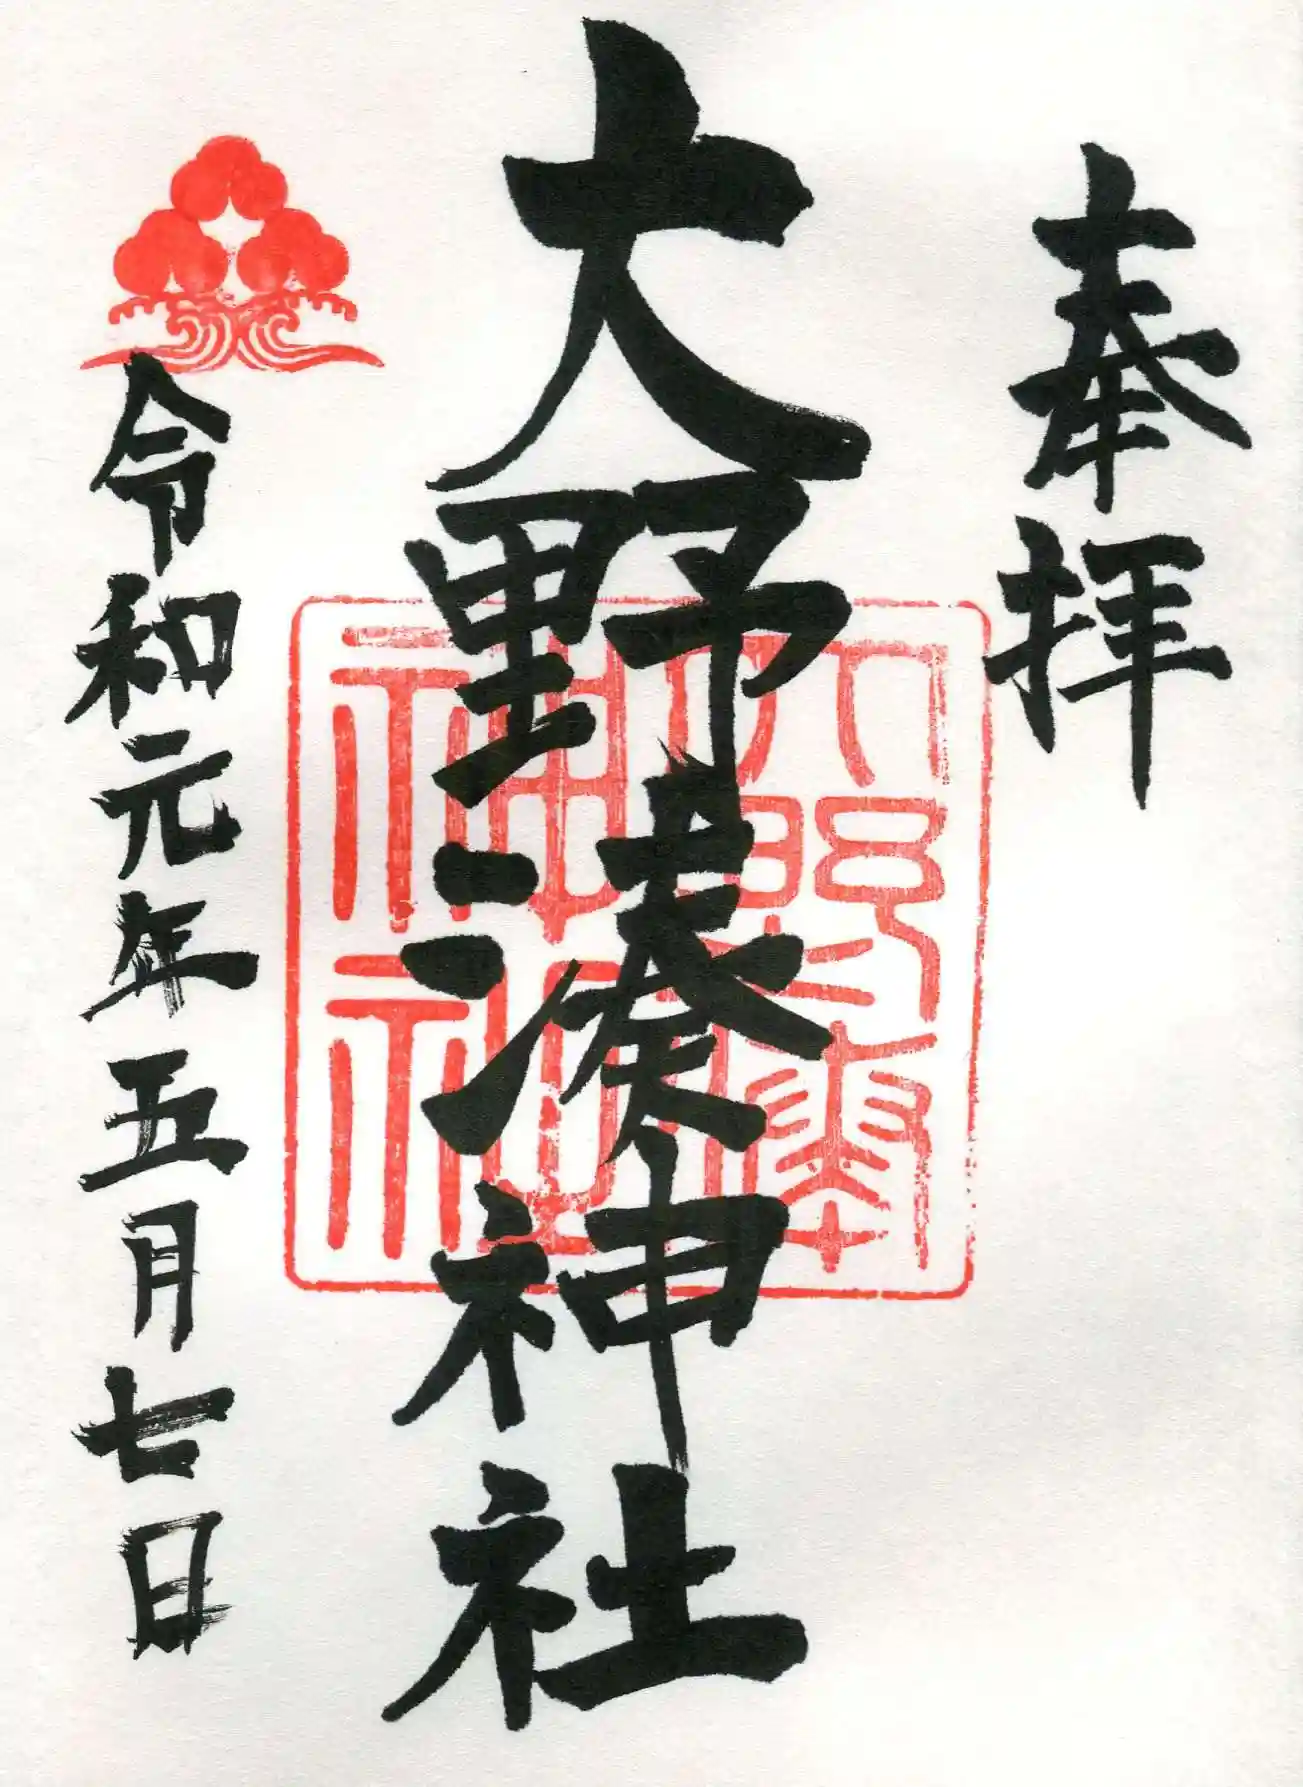 奉拝
大野湊神社
大野湊神社
令和元年五月七日